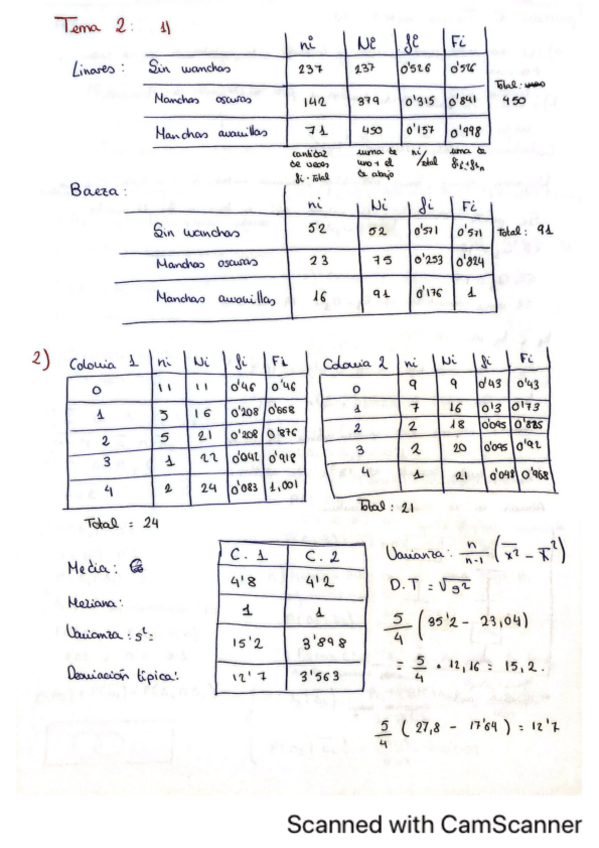 Tema 2: 1)
ni Ni fi Fi
Linares: Sin manchas 237 237 0'526 0'526
Total: 450
Manchas oscuras 142 379 0'315 0'841
Manchas amarillas 71 450 0'157 0'998
cantidad de veces fi · total
suma de uno + el de abajo
ni/total
suma de
Baeza:
ni Ni fi Fi
Sin manchas 52 52 0'571 0'571 Total: 91
Manchas oscuras 23 75 0'253 0'824
Manchas amarillas 16 91 0'176 1
2) Colonia 1 ni Ni fi Fi
0 11 11 0'46 0'46
1 5 16 0'208 0'668
2 5 21 0'208 0'876
3 1 22 0'042 0'918
4 2 24 0'083 1,001
Total = 24
Colonia 2 ni Ni fi Fi
0 9 9 0'43 0'43
1 7 16 0'3 0'73
2 2 18 0'095 0'825
3 2 20 0'095 0'92
4 1 21 0'048 0'968
Total: 21
C. 1 C. 2
Media: 4'8 4'2
Mediana: 1 1
Varianza: s²= 15'2 3'898
Desviación típica: 12'7 3'563
Varianza: n/n-1 (x̄² - x̄²)
D.T = √s²
5/4 (35'2 - 23,04)
= 5/4 · 12,16 = 15,2.
5/4 (27,8 - 17'64) = 12'7
Scanned with CamScanner